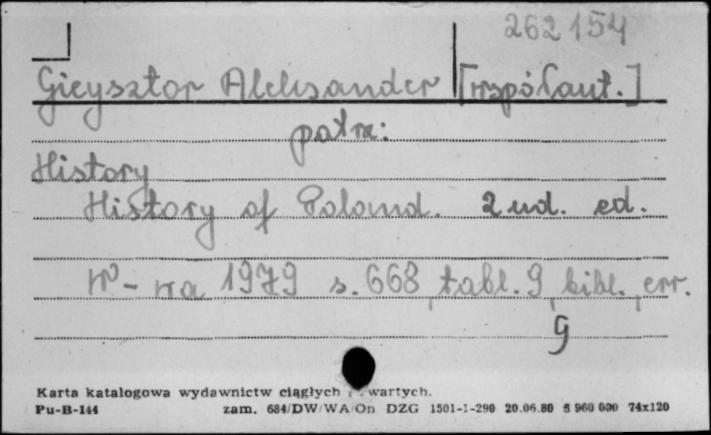 262154
Gieysztor Aleksander [współaut.]
patrz:
History
History of Poland. 2nd. ed.
W-wa 1979 s. 668, tabl. 9, bibl., err.
9
Karta katalogowa wydawnictw ciągłych i zwartych.
Pu-B-144 zam. 684/DW/WA/On DZG 1501-1-290 20.06.80 6 960 000 74x120